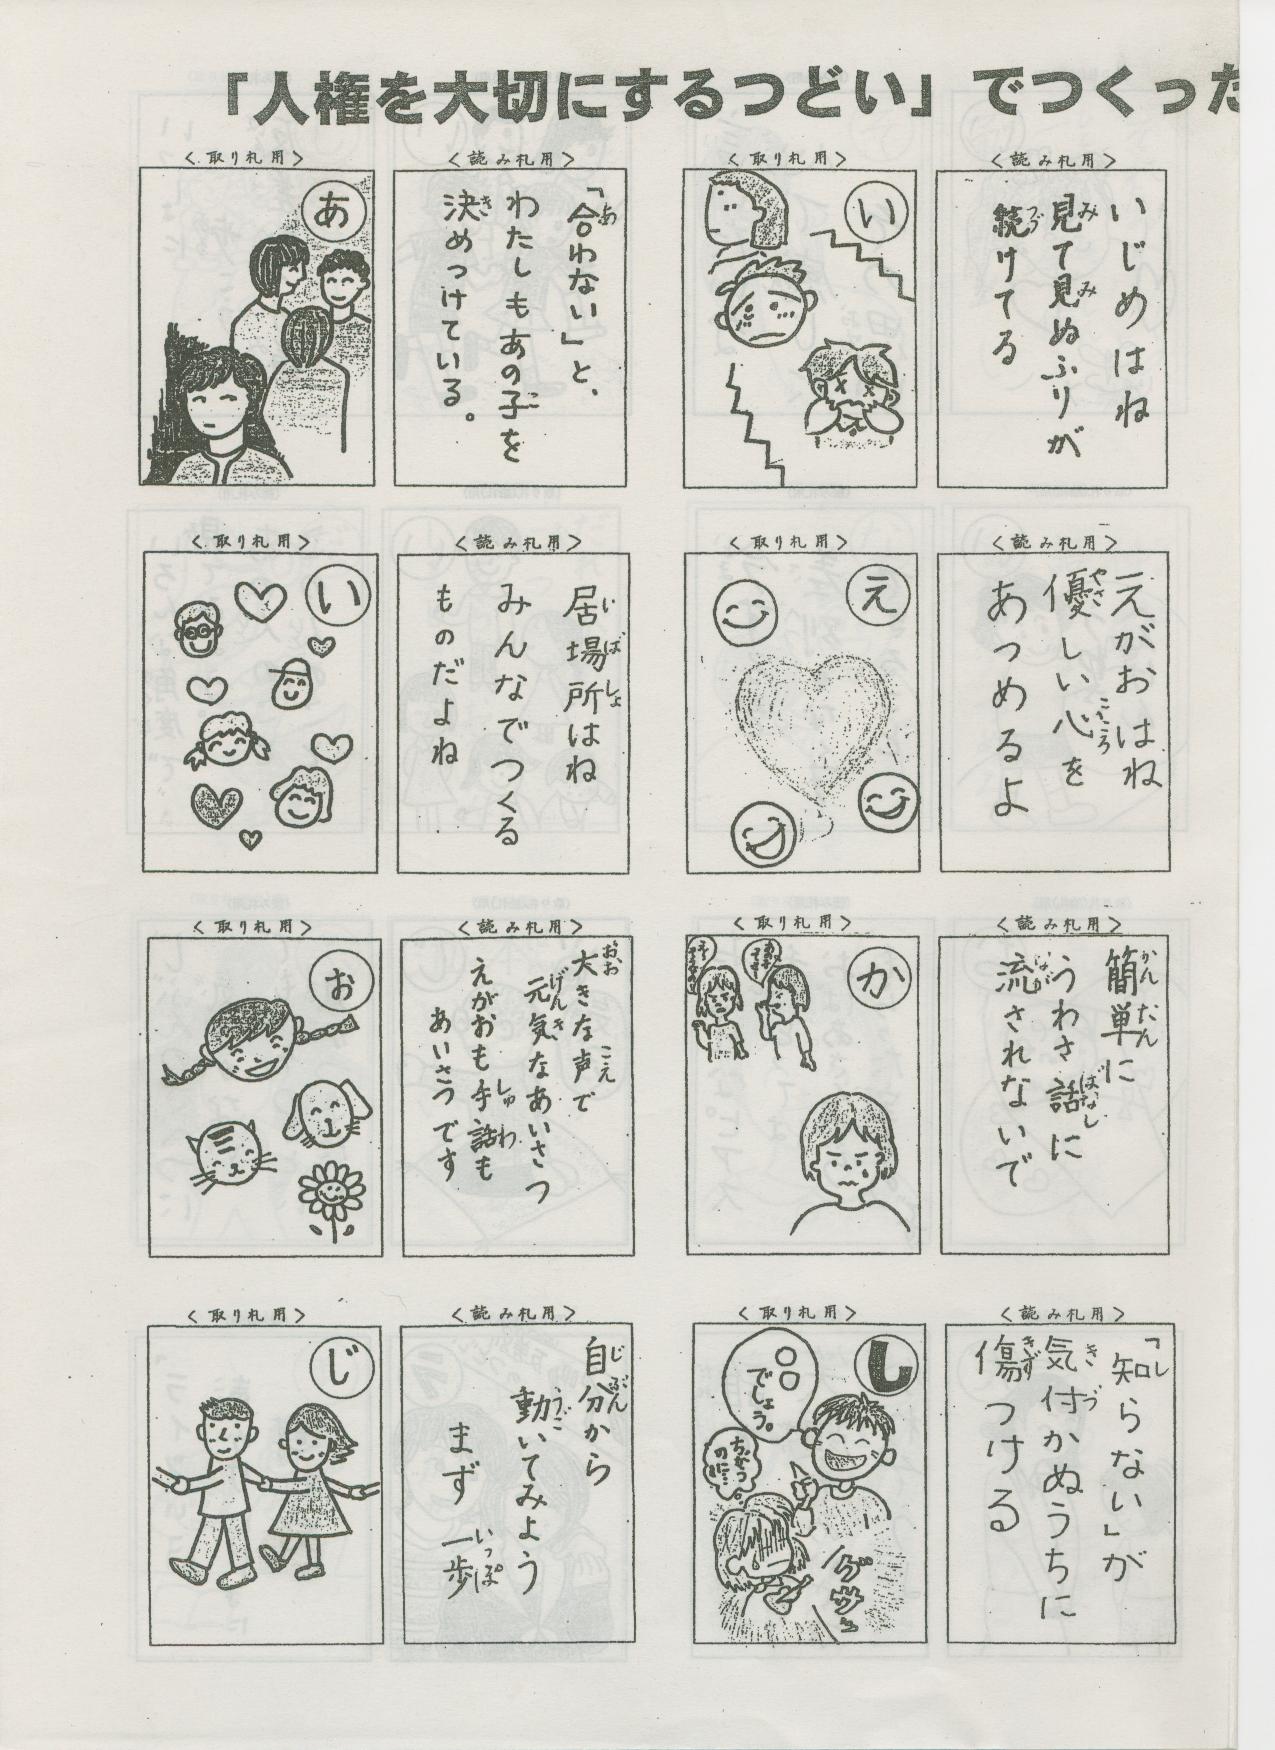 「人権を大切にするつどい」でつくった
〈取り札用〉
あ
〈読み札用〉
「合わない」と、
わたしもあの子を
決めつけている。
〈取り札用〉
い
〈読み札用〉
いじめはね
見て見ぬふりが
続けてる
〈取り札用〉
い
〈読み札用〉
居場所はね
みんなでつくる
ものだよね
〈取り札用〉
え
〈読み札用〉
えがおはね
優しい心を
あつめるよ
〈取り札用〉
お
〈読み札用〉
大きな声で
元気なあいさつ
えがおも手話も
あいさつです
〈取り札用〉
か
〈読み札用〉
簡単に
うわさ話に
流されないで
〈取り札用〉
じ
〈読み札用〉
自分から
動いてみよう
まず一歩
〈取り札用〉
し
〇〇
でしょう。
ちがう
のに…
グサッ
〈読み札用〉
「知らない」が
気付かぬうちに
傷つける